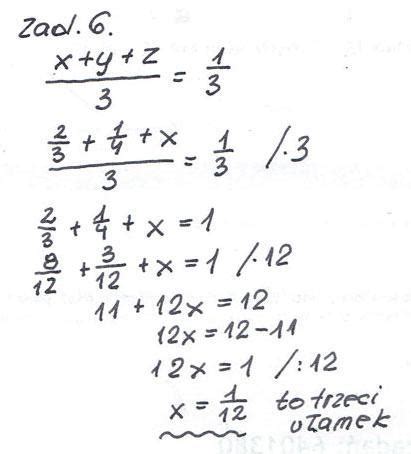 zad. 6.
(x+y+z)/3 = 1/3
(2/3 + 1/4 + x)/3 = 1/3 /·3
2/3 + 1/4 + x = 1
8/12 + 3/12 + x = 1 /·12
11 + 12x = 12
12x = 12-11
12x = 1 /:12
x = 1/12 to trzeci
ułamek
zadań: 6401380